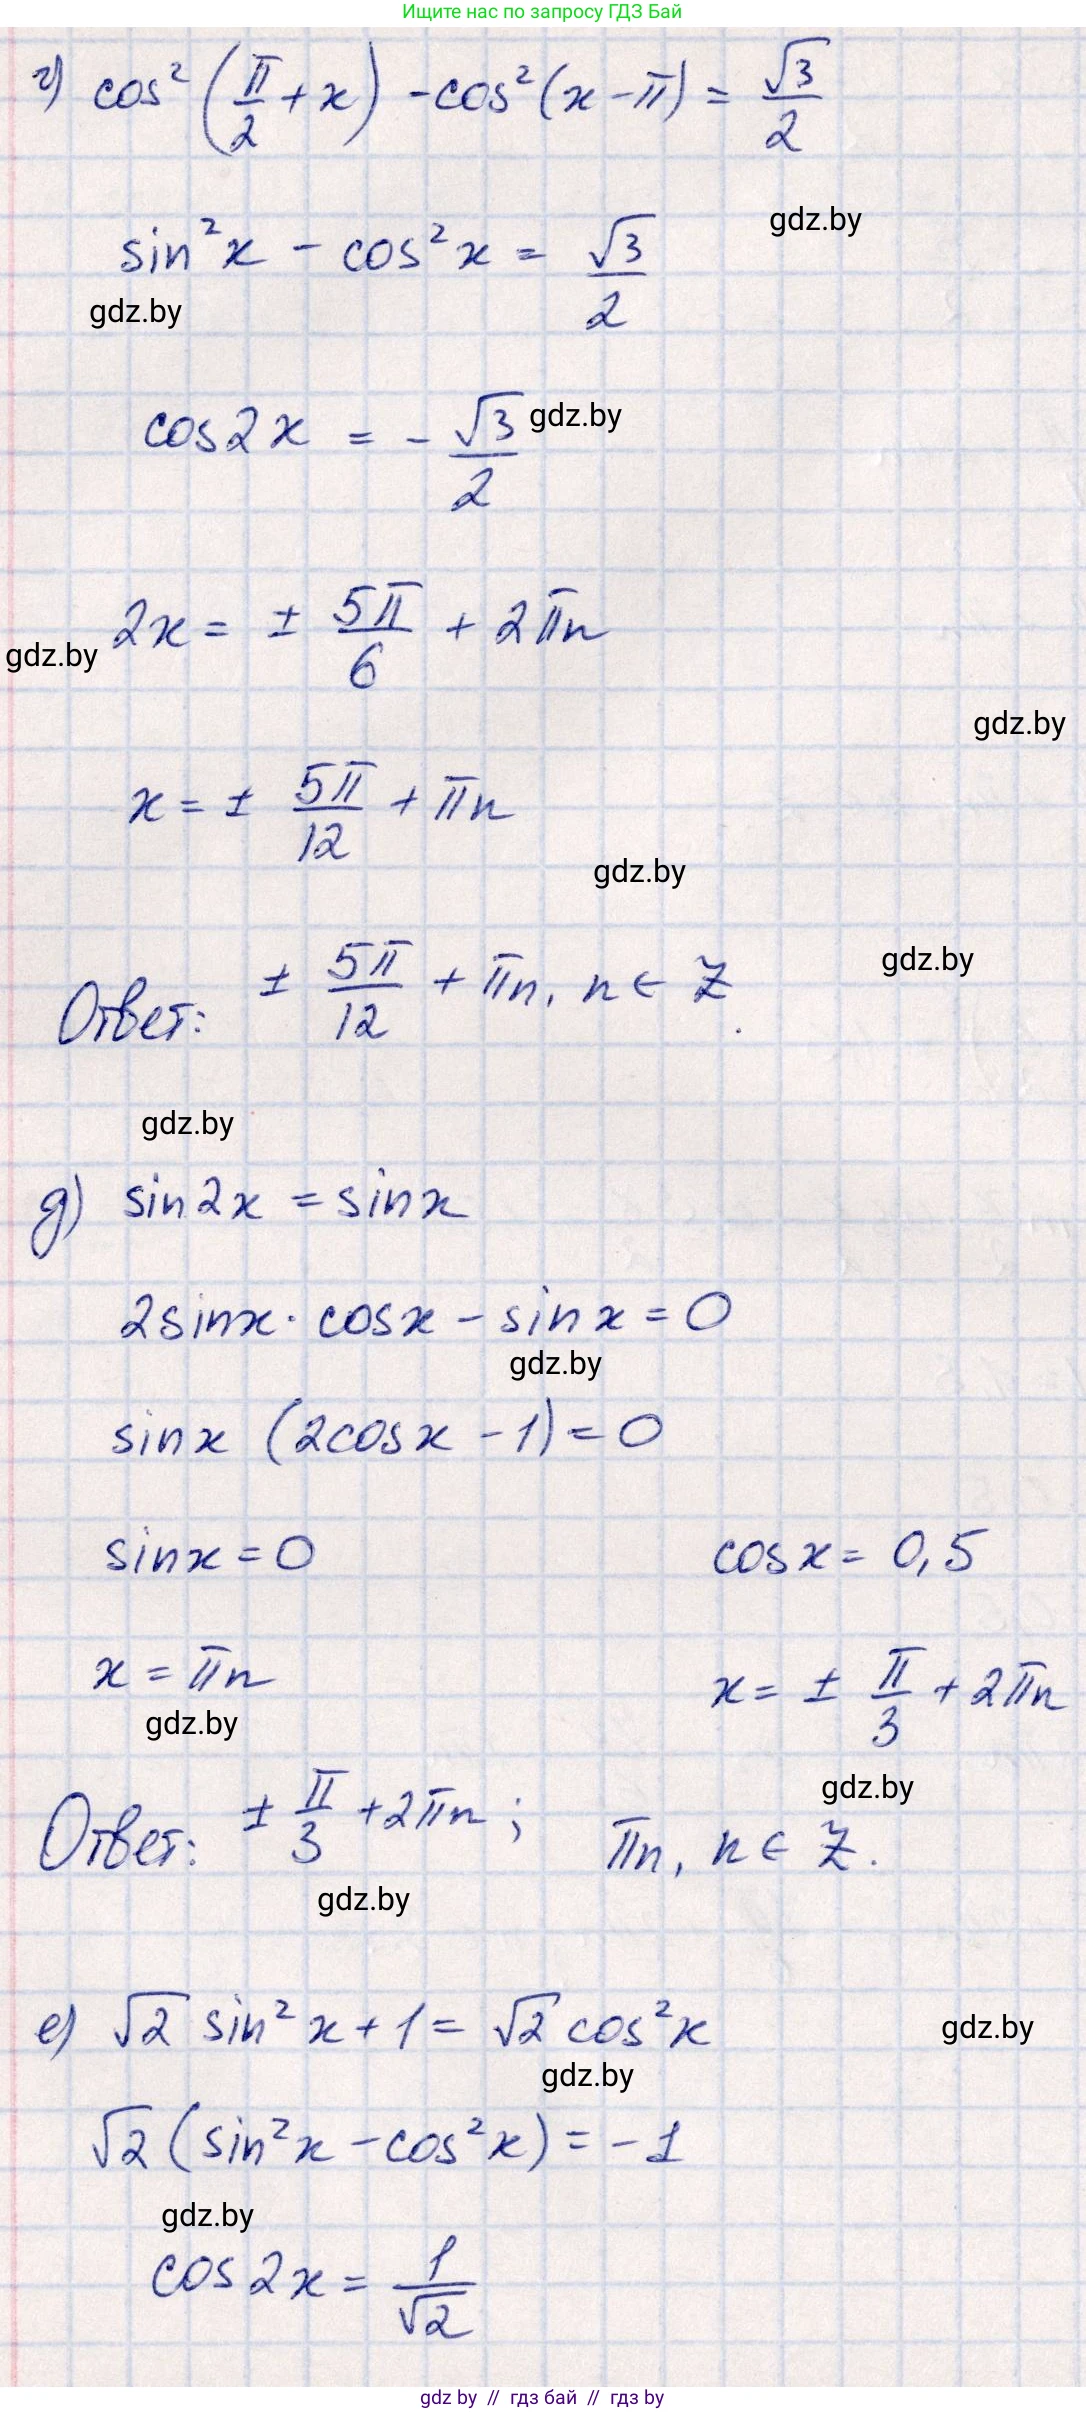 Ищите нас по запросу ГДЗ Бай
г) cos²(π/2 + x) - cos²(x - π) = √3/2
gdz.by
sin²x - cos²x = √3/2
gdz.by
cos2x = - √3/2
gdz.by
2x = ± 5π/6 + 2πn
gdz.by
gdz.by
x = ± 5π/12 + πn
gdz.by
gdz.by
Ответ: ± 5π/12 + πn, n ∈ Z.
gdz.by
д) sin2x = sinx
2sinx · cosx - sinx = 0
gdz.by
sinx (2cosx - 1) = 0
sinx = 0 cosx = 0,5
x = πn x = ± π/3 + 2πn
gdz.by
gdz.by
Ответ: ± π/3 + 2πn; πn, n ∈ Z.
gdz.by
е) √2 sin²x + 1 = √2 cos²x
gdz.by
gdz.by
√2 (sin²x - cos²x) = -1
gdz.by
cos2x = 1/√2
gdz by // гдз бай // гдз by